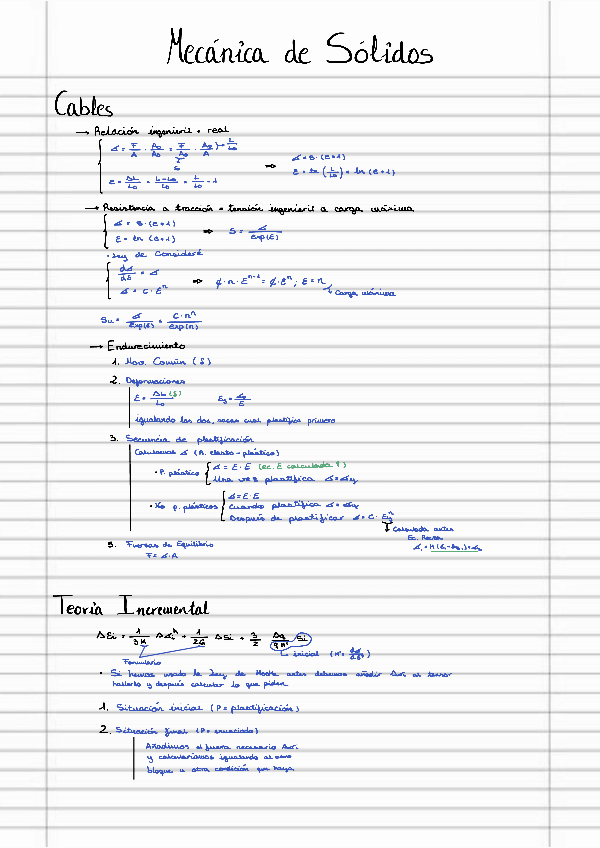 Mecánica de Sólidos
Cables
→ Relación ingenieril - real
σ = F/A · A₀/A₀ = F/A₀ · A₀/A → L/L₀
S
ε = ΔL/L₀ = L-L₀/L₀ = L/L₀ - 1
⇒
σ = S·(e+1)
ε = ln (L/L₀) = ln (e+1)
→ Resistencia a tracción = tensión ingenieril a carga máxima
σ = S·(e+1)
ε = ln (e+1)
⇒ S = σ/exp(ε)
· Ley de Consideré
dσ/dε = σ
σ = C·εⁿ
⇒ ¢·n·εⁿ⁻¹ = ¢·εⁿ ; ε = n
↳ Carga máxima
Su = σ/exp(ε) = C·nⁿ/exp(n)
→ Endurecimiento
1. Mov. Común (δ)
2. Deformaciones
ε = ΔL(δ)/L₀
igualando las dos, sacas cual plastifica primero
3. Secuencia de plastificación
Calculamos σ (R. elasto-plástico)
· P. plástico
σ = E·ε (ec. ε calculada ↑)
Una vez plastifica σ = σy
· No p. plásticos
σ = E·ε
Cuando plastifica σ = σy
Después de plastificar σ = C·
Calculada antes
Ec. Recta
5. Fuerzas de Equilibrio
F = σ·A
Teoría Incremental
Δεi = 1/3K Δσᵢʰ + 1/2G ΔSi + 3/2
Formulario
↳ inicial
· Si hemos usado la Ley de Hooke antes debemos añadir al tensor
hallarlo y después calcular lo que piden
1. Situación inicial (P = plastificación)
2. Situación final (P = enunciado)
Añadimos si fuera necesario
y calculariamos igualando al
bloque u otra condición que haya